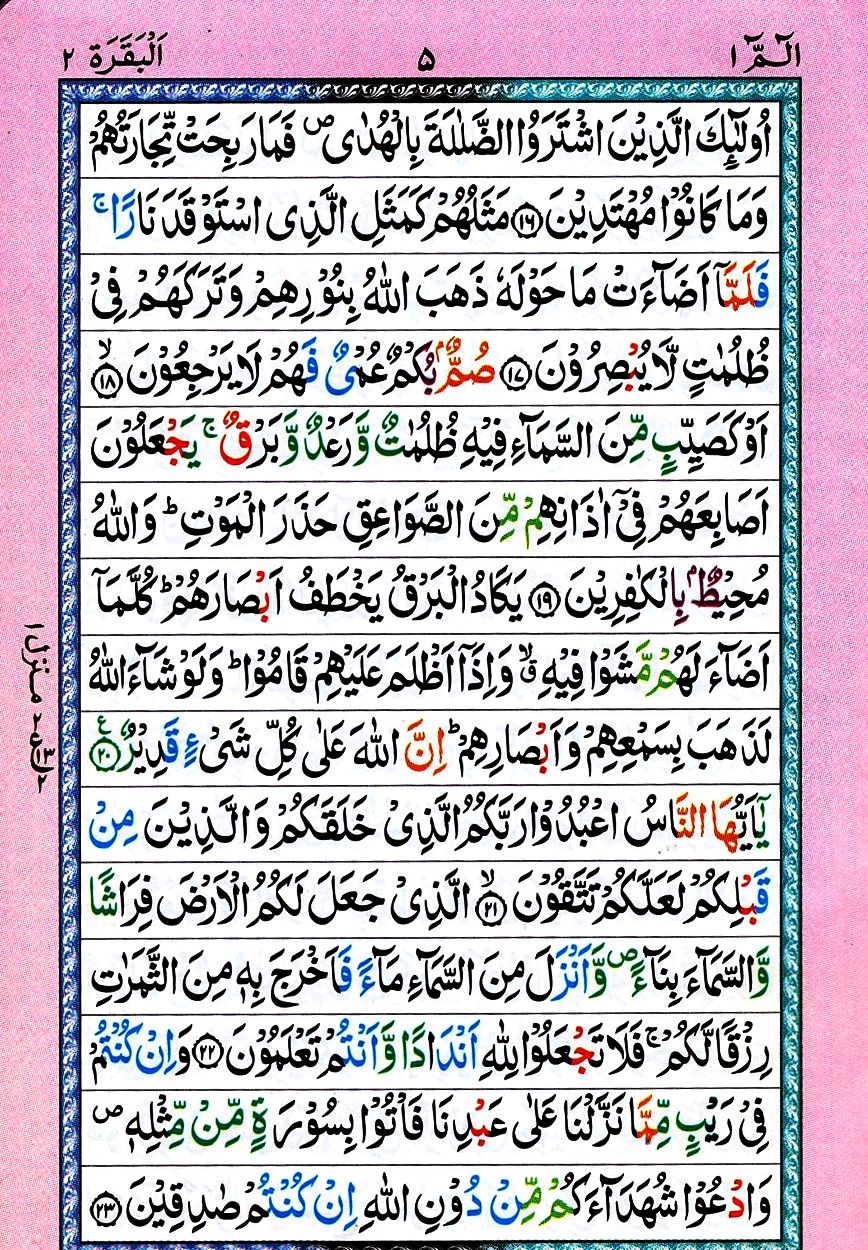 الٓمّٓ ١ ٥ اَلْبَقَرَة ٢
اُولٰٓئِكَ الَّذِيْنَ اشْتَرَوُا الضَّلٰلَةَ بِالْهُدٰى ۪ فَمَا رَبِحَتْ تِّجَارَتُهُمْ
وَمَا كَانُوْا مُهْتَدِيْنَ ۝١٦ مَثَلُهُمْ كَمَثَلِ الَّذِى اسْتَوْقَدَ نَارًا ۚ
فَلَمَّآ اَضَآءَتْ مَا حَوْلَهٗ ذَهَبَ اللّٰهُ بِنُوْرِهِمْ وَتَرَكَهُمْ فِىْ
ظُلُمٰتٍ لَّا يُبْصِرُوْنَ ۝١٧ صُمٌّۢ بُكْمٌ عُمْىٌ فَهُمْ لَا يَرْجِعُوْنَ ۙ۝١٨
اَوْ كَصَيِّبٍ مِّنَ السَّمَآءِ فِيْهِ ظُلُمٰتٌ وَّرَعْدٌ وَّبَرْقٌ ۚ يَجْعَلُوْنَ
اَصَابِعَهُمْ فِىْٓ اٰذَانِهِمْ مِّنَ الصَّوَاعِقِ حَذَرَ الْمَوْتِ ؕ وَاللّٰهُ
مُحِيْطٌۢ بِالْكٰفِرِيْنَ ۝١٩ يَكَادُ الْبَرْقُ يَخْطَفُ اَبْصَارَهُمْ ؕ كُلَّمَآ
اَضَآءَ لَهُمْ مَّشَوْا فِيْهِ ۙۗ وَاِذَآ اَظْلَمَ عَلَيْهِمْ قَامُوْا ؕ وَلَوْ شَآءَ اللّٰهُ
لَذَهَبَ بِسَمْعِهِمْ وَاَبْصَارِهِمْ ؕ اِنَّ اللّٰهَ عَلٰى كُلِّ شَىْءٍ قَدِيْرٌ ۝٢٠ ع
يٰٓاَيُّهَا النَّاسُ اعْبُدُوْا رَبَّكُمُ الَّذِىْ خَلَقَكُمْ وَالَّذِيْنَ مِنْ
قَبْلِكُمْ لَعَلَّكُمْ تَتَّقُوْنَ ۙ۝٢١ الَّذِىْ جَعَلَ لَكُمُ الْاَرْضَ فِرَاشًا
وَّالسَّمَآءَ بِنَآءً ۪ وَّاَنْزَلَ مِنَ السَّمَآءِ مَآءً فَاَخْرَجَ بِهٖ مِنَ الثَّمَرٰتِ
رِزْقًا لَّكُمْ ۚ فَلَا تَجْعَلُوْا لِلّٰهِ اَنْدَادًا وَّاَنْتُمْ تَعْلَمُوْنَ ۝٢٢ وَاِنْ كُنْتُمْ
فِىْ رَيْبٍ مِّمَّا نَزَّلْنَا عَلٰى عَبْدِنَا فَاْتُوْا بِسُوْرَةٍ مِّنْ مِّثْلِهٖ ۪
وَادْعُوْا شُهَدَآءَكُمْ مِّنْ دُوْنِ اللّٰهِ اِنْ كُنْتُمْ صٰدِقِيْنَ ۝٢٣
منزل ١